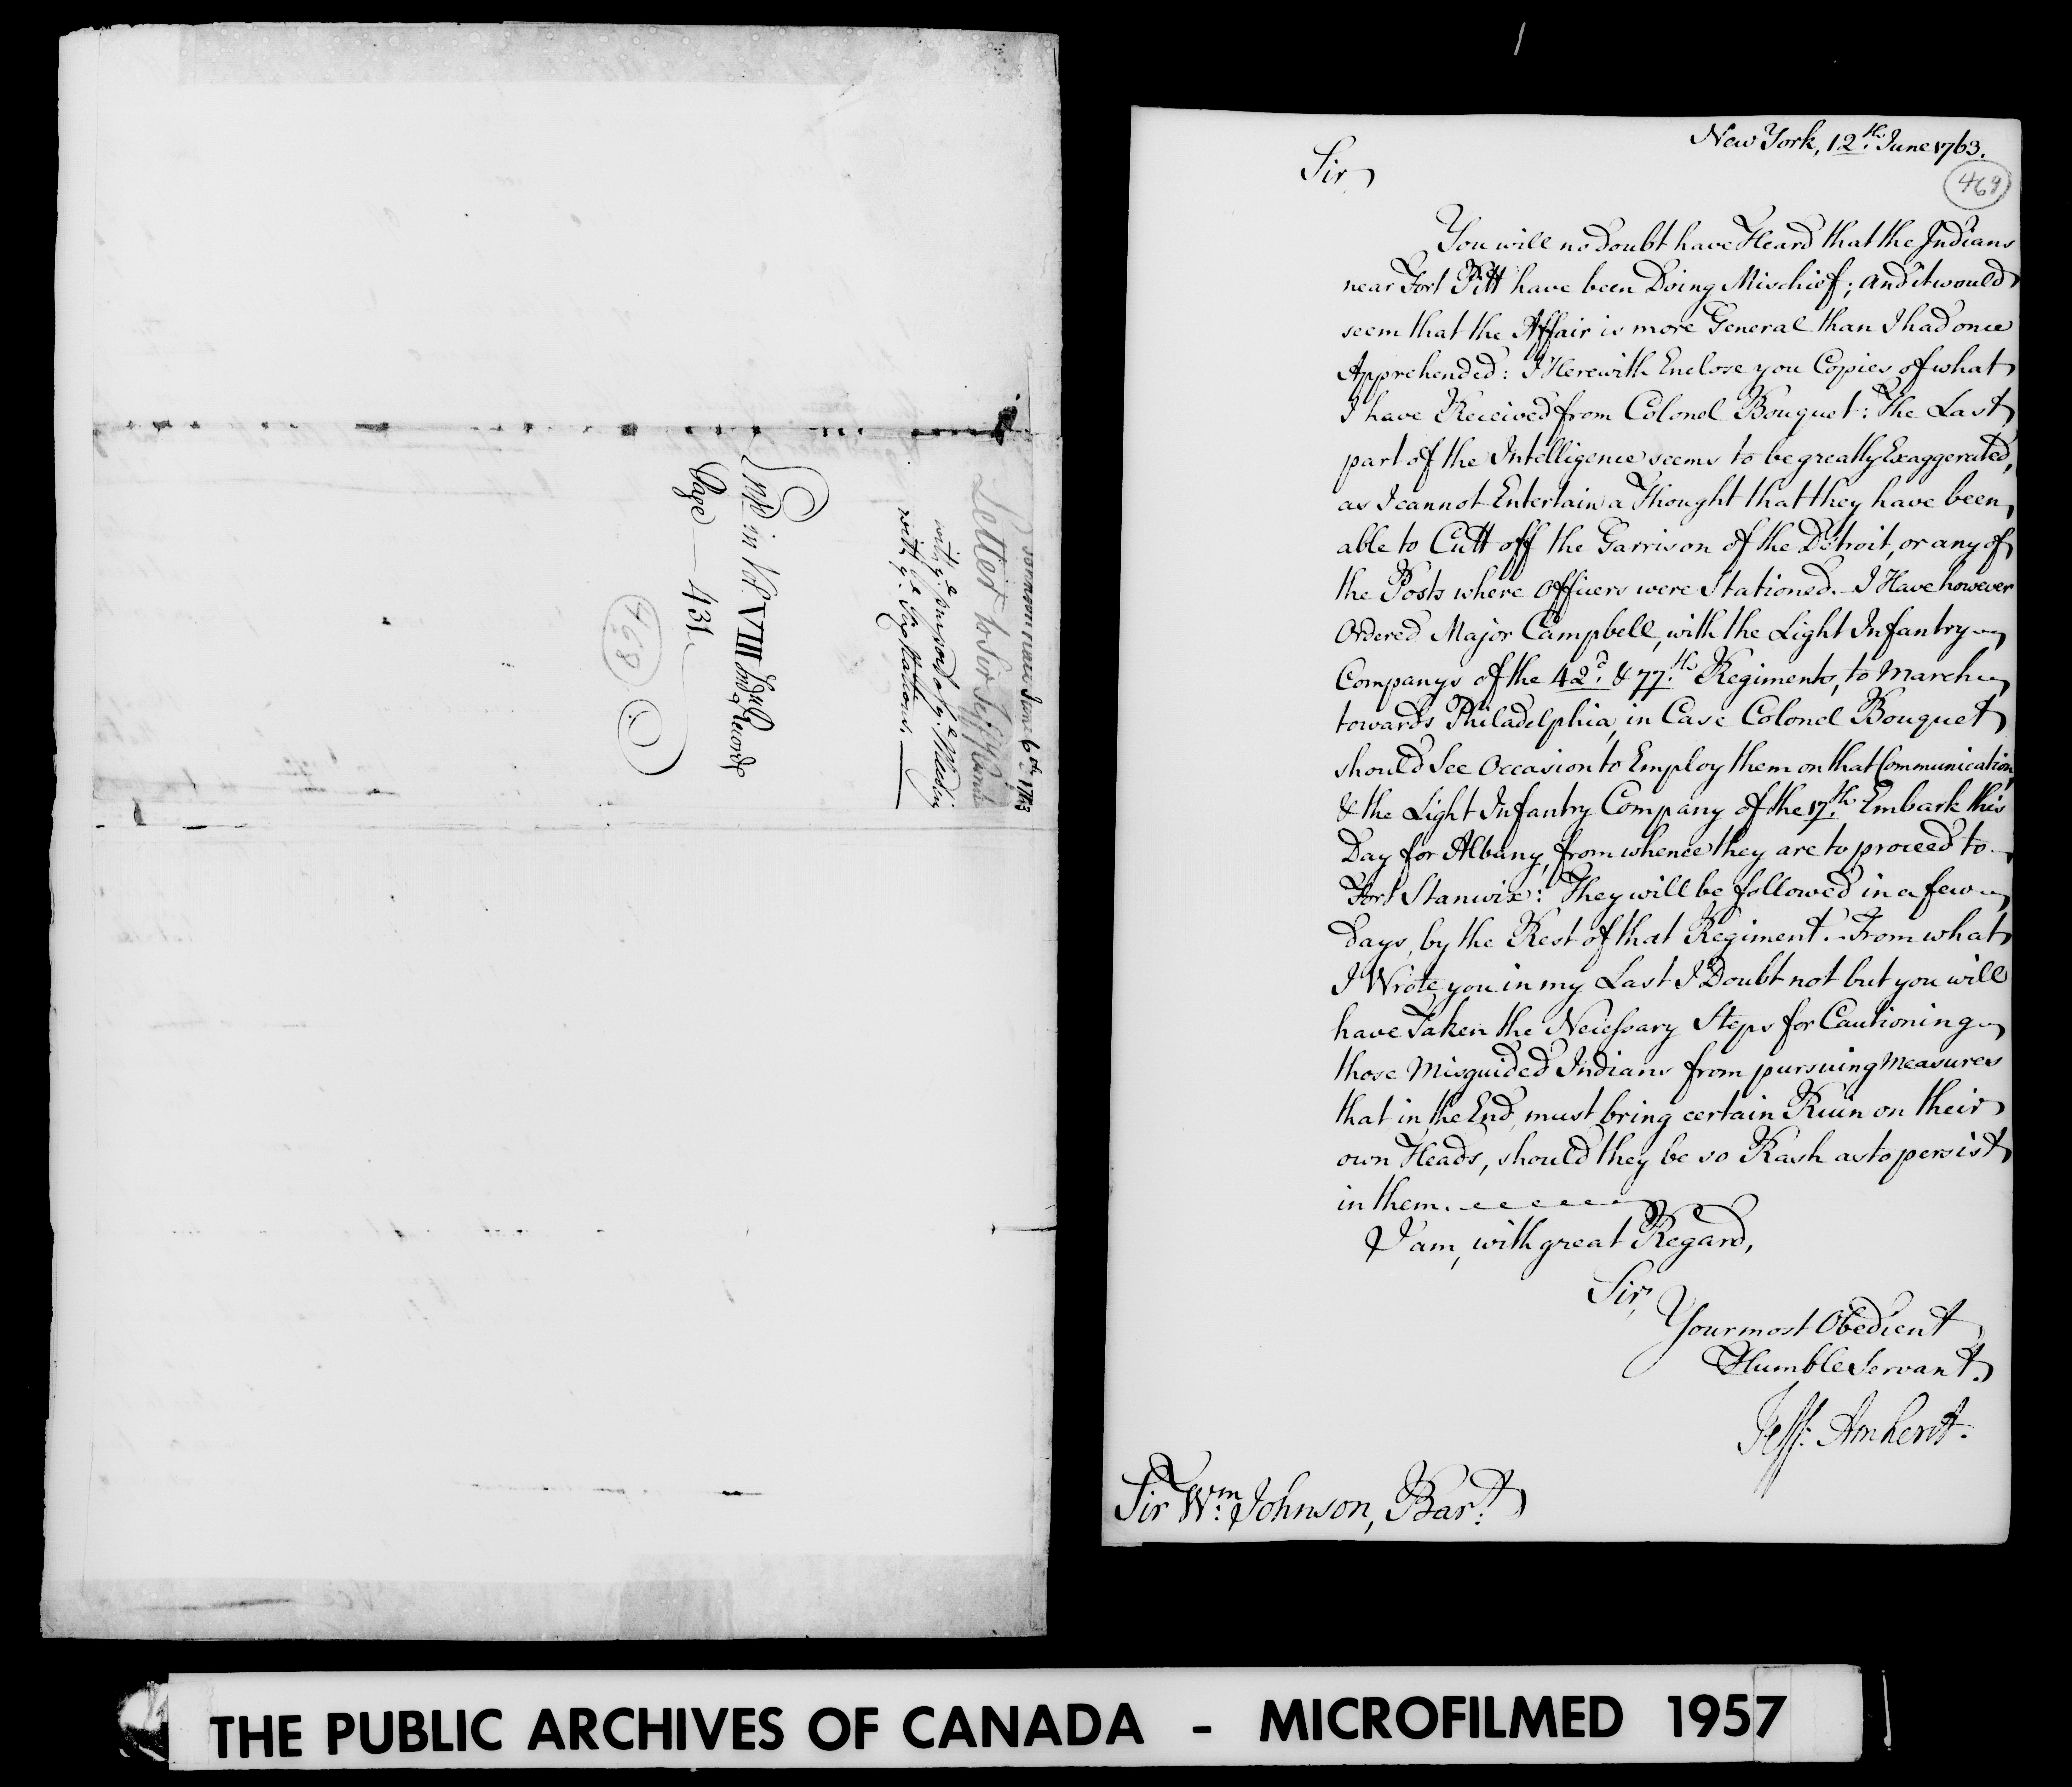 Johnson Hall June 6th 1763
Letter to Sir Jeff Amherst
with ye
with ye
Entd in Vol. VIII Ind Records
Page — 431
468
New York, 12th. June 1763.
469
Sir
You will no doubt have Heard that the Indians
near Fort Pitt have been Doing Mischief; and it would
seem that the Affair is more General than I had once
Apprehended: I Herewith Enclose you Copies of what
I have Received from Colonel Bouquet: The Last
part of the Intelligence seems to be greatly Exaggerated,
as I cannot Entertain a Thought that they have been
able to Cutt off the Garrison of the Detroit, or any of
the Posts where Officers were Stationed. – I Have however
Ordered Major Campbell, with the Light Infantry
Companys of the 42d. & 77th. Regiments, to March
towards Philadelphia, in Case Colonel Bouquet
should see Occasion to Employ them on that Communication,
& the Light Infantry Company of the 17th. Embark this
Day for Albany, from whence they are to proceed to
Fort Stanwix: They will be followed in a few
Days, by the Rest of that Regiment. – From what
I Wrote you in my Last I Doubt not but you will
have Taken the Necessary Steps for Cautioning
those Misguided Indians from pursuing Measures
that in the End, must bring certain Ruin on their
own Heads, should they be so Rash as to persist
in them.
I am, with great Regard,
Sir,
Your most Obedient
Humble Servant.
Jeff: Amherst.
Sir Wm. Johnson, Bart.
THE PUBLIC ARCHIVES OF CANADA - MICROFILMED 1957